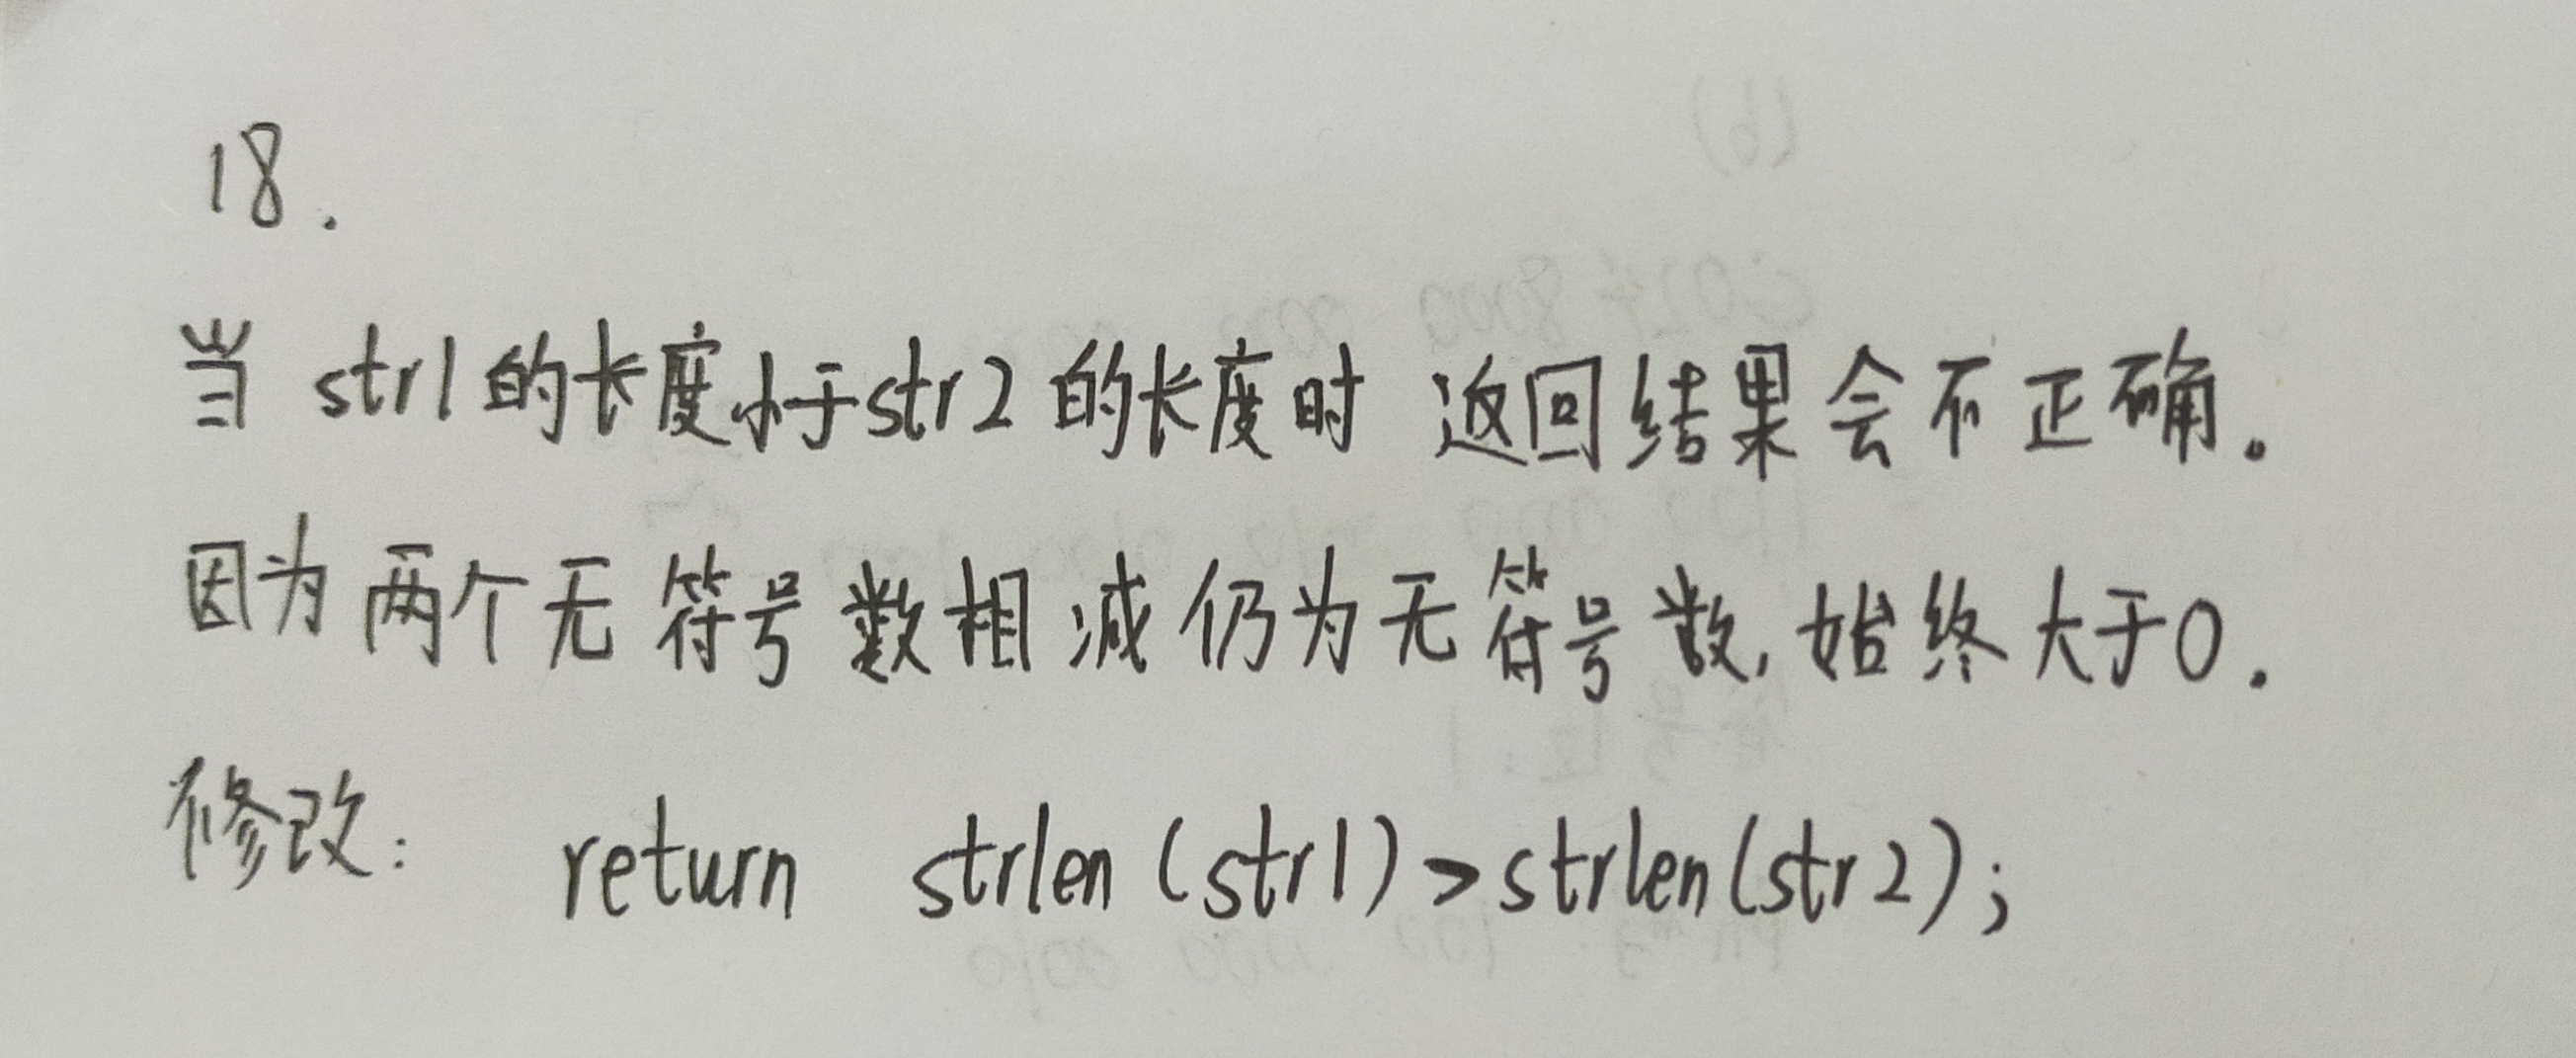 18.
当 str1的长度小于str2的长度时 返回结果会不正确。
因为两个无符号数相减仍为无符号数，始终大于0.
修改： return strlen(str1)>strlen(str2);